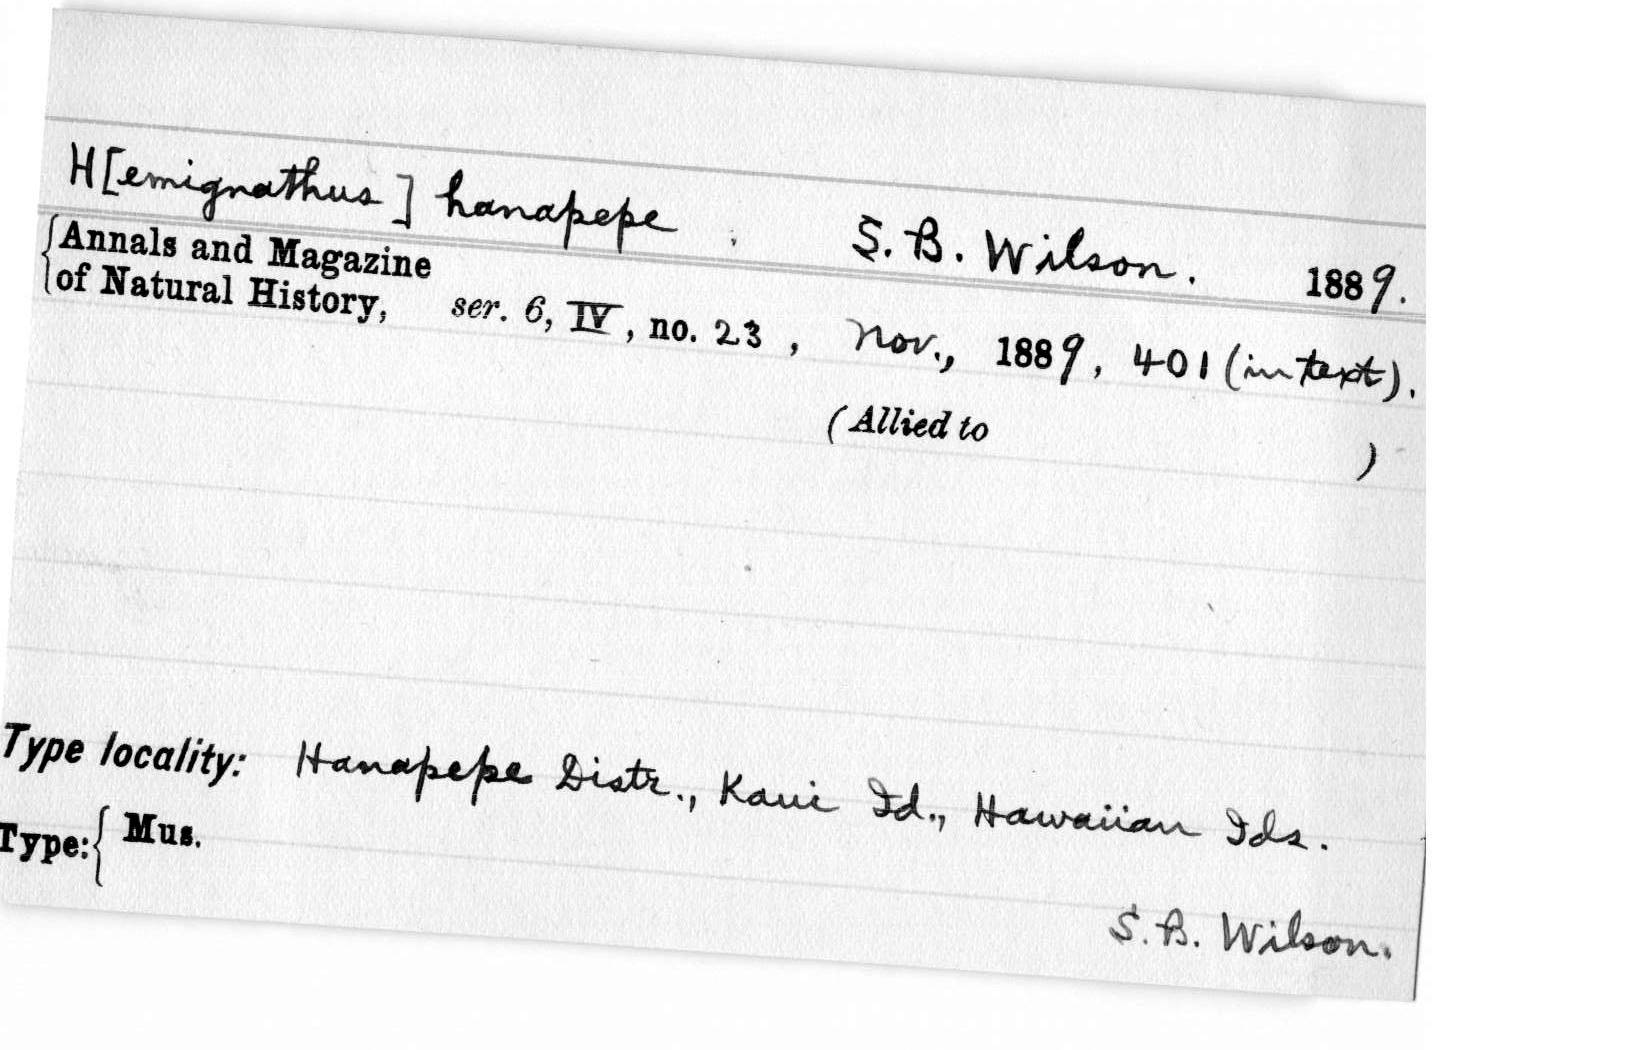 H[emignathus] hanapepe . S. B. Wilson. 1889.
{Annals and Magazine
of Natural History, ser. 6, IV, no. 23, Nov., 1889, 401 (in text).
(Allied to )
Type locality: Hanapepe Distr., Kaui Id., Hawaiian Ids.
Type: { Mus.
S. B. Wilson.